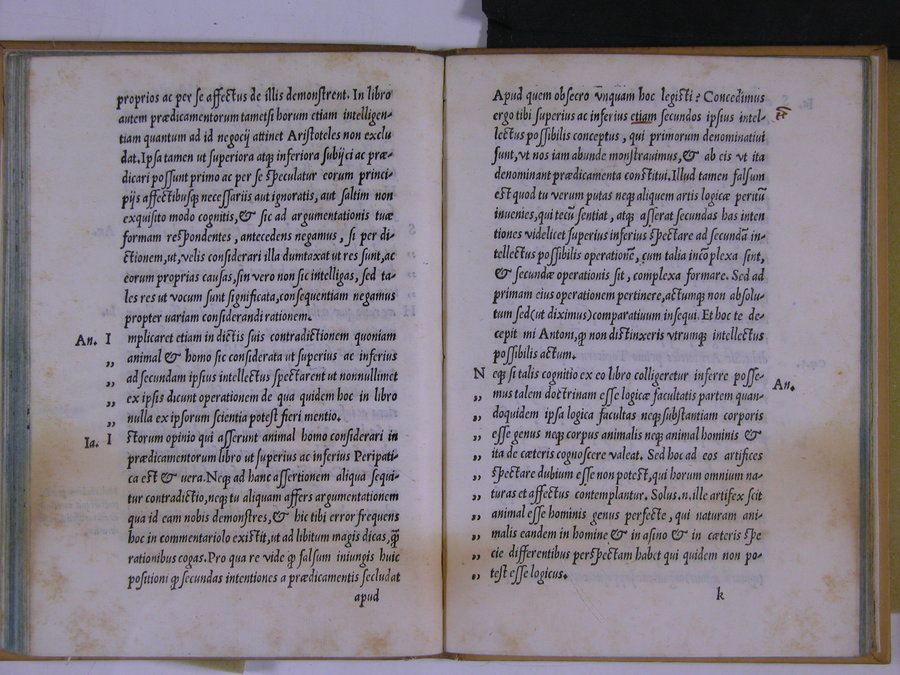 proprios ac per se affectus de illis demonstrent. In libro
autem prædicamentorum tametsi horum etiam intelligen-
tiam quantum ad id negocij attinet Aristoteles non exclu
dat. Ipsa tamen ut superiora atq; inferiora subijci ac præ-
dicari possunt primo ac per se speculatur eorum princi-
pijs affectibusq; necessariis aut ignoratis, aut saltim non
exquisito modo cognitis, & sic ad argumentationis tuæ
formam respondentes, antecedens negamus, si per di-
ctionem, ut, velis considerari illa dumtaxat ut res sunt, ac
eorum proprias causas, sin vero non sic intelligas, sed ta-
les res ut vocum sunt significata, consequentiam negamus
propter uariam considerandi rationem.
An. I mplicaret etiam in dictis suis contradictionem quoniam
„ animal & homo sic considerata ut superius ac inferius
„ ad secundam ipsius intellectus spectarent ut nonnullimet
„ ex ipsis dicunt operationem de qua quidem hoc in libro
„ nulla ex ipsorum scientia potest fieri mentio.
Ia. I storum opinio qui asserunt animal homo considerari in
prædicamentorum libro ut superius ac inferius Peripati-
ca est & uera. Neq; ad hanc assertionem aliqua sequi-
tur contradictio, neq; tu aliquam affers argumentationem
qua id eam nobis demonstres, & hic tibi error frequens
hoc in commentariolo existit, ut ad libitum magis dicas, q̃
rationibus cogas. Pro qua re vide ꝙ falsum iniungis huic
positioni ꝙ secundas intentiones a prædicamentis secludat
apud
Apud quem obsecro vnquàm hoc legisti? Concedimus
ergo tibi superius ac inferius etiam secundos ipsius intel-
lectus possibilis conceptus, qui primorum denominatiui
sunt, vt nos iam abunde monstrauimus, & ab eis vt ita
denominant prædicamenta constitui. Illud tamen falsum
est quod tu verum putas neq; aliquem artis logicæ peritũ
inuenies, qui tecũ sentiat, atq; asserat secundas has inten
tiones videlicet superius inferius spectare ad secundã in-
tellectus possibilis operationẽ, cum talia incõplexa sint,
& secundæ operationis sit, complexa formare. Sed ad
primam eius operationem pertinere, actumq; non absolu-
tum sed (ut diximus) comparatiuum insequi. Et hoc te de-
cepit mi Antoni, ꝙ non distinxeris vtrumq; intellectus
possibilis actum.
N eq; si talis cognitio ex eo libro colligeretur inferre posse- An.
„ mus talem doctrinam esse logicæ facultatis partem quan-
„ doquidem ipsa logica facultas neq; substantiam corporis
„ esse genus neq; corpus animalis neq; animal hominis &
„ ita de cæteris cognoscere valeat. Sed hoc ad eos artifices
„ spectare dubium esse non potest, qui horum omnium na-
„ turas et affectus contemplantur. Solus .n. ille artifex scit
„ animal esse hominis genus perfecte, qui naturam ani-
„ malis eandem in homine & in asino & in cæteris spe
„ cie differentibus perspectam habet qui quidem non po-
„ test esse logicus.
k